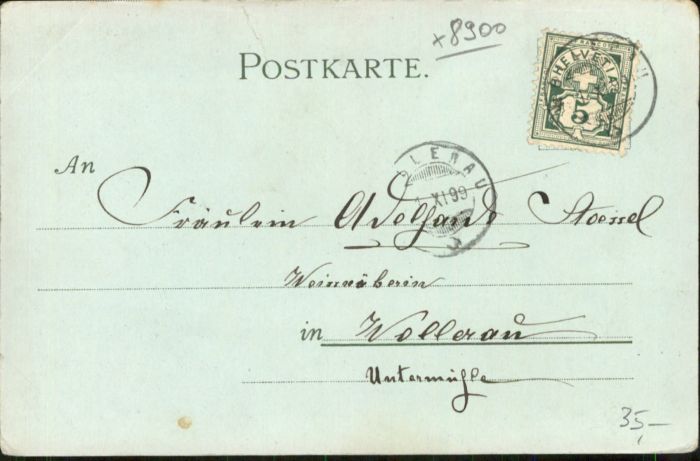 x8900
POSTKARTE.
HELVETIA
5
OLLERAU
XI 99
An
Fräulein Adelgand Stoessel
Weissnäherin
in Wollerau
Untermühle
35,-